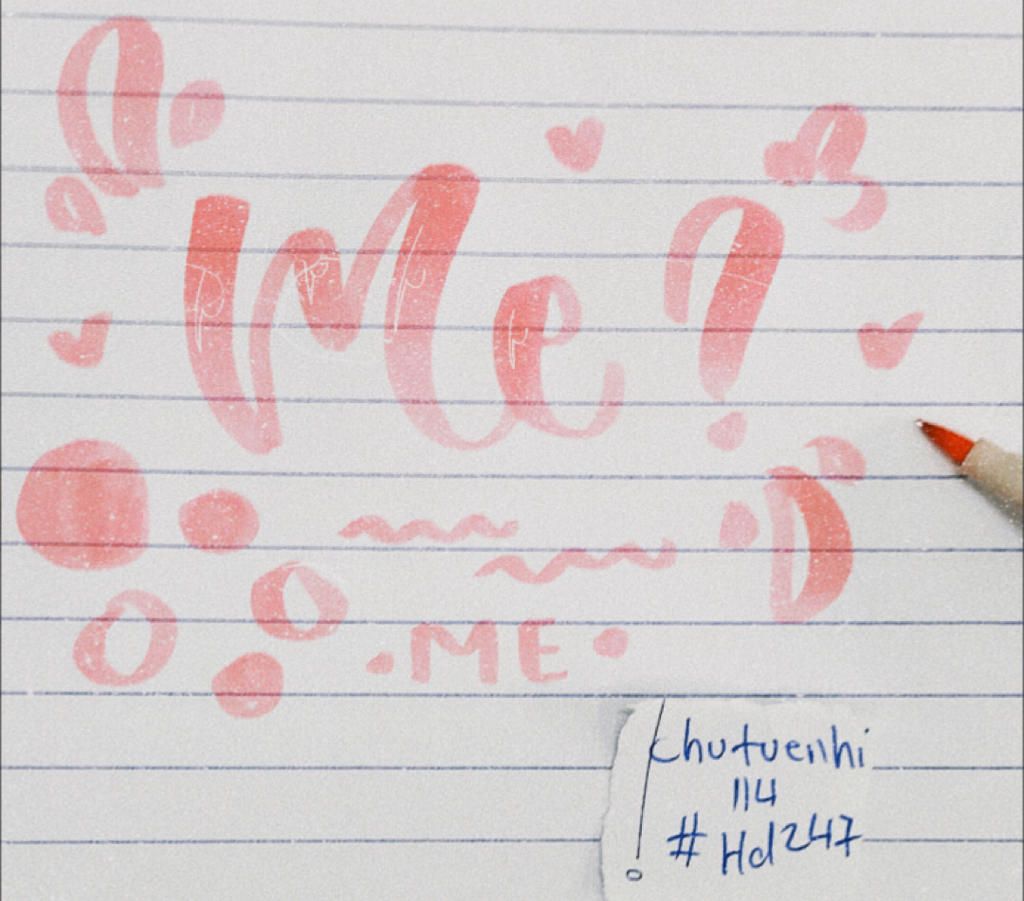 Me?
• ME •
chutuenhi
114
#Hd247